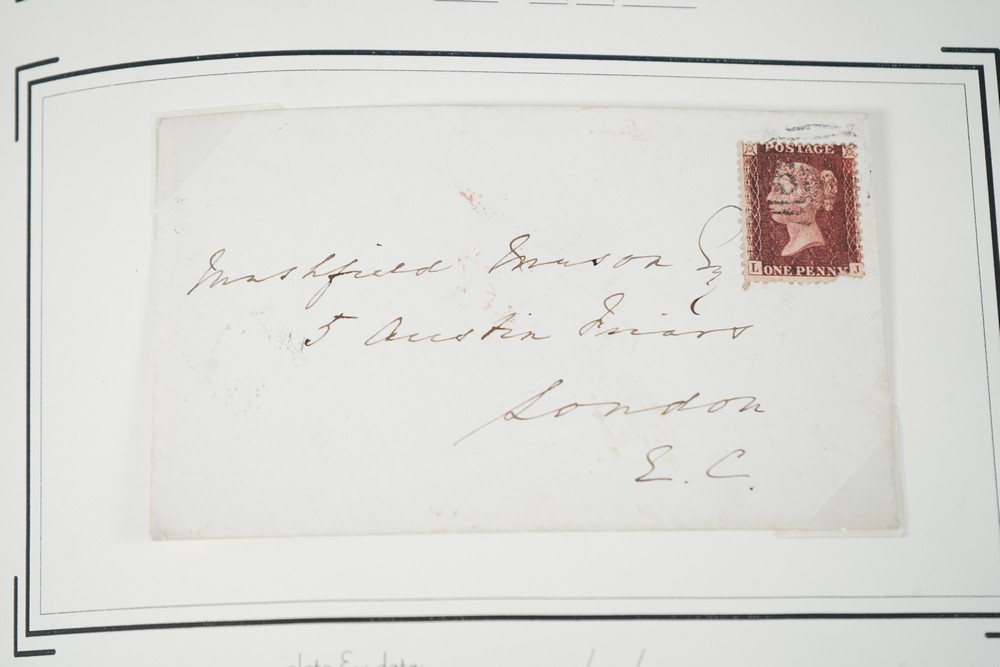 POSTAGE
L ONE PENNY J
Mushfield Muson Esq
5 Austin Friars
London
E. C.